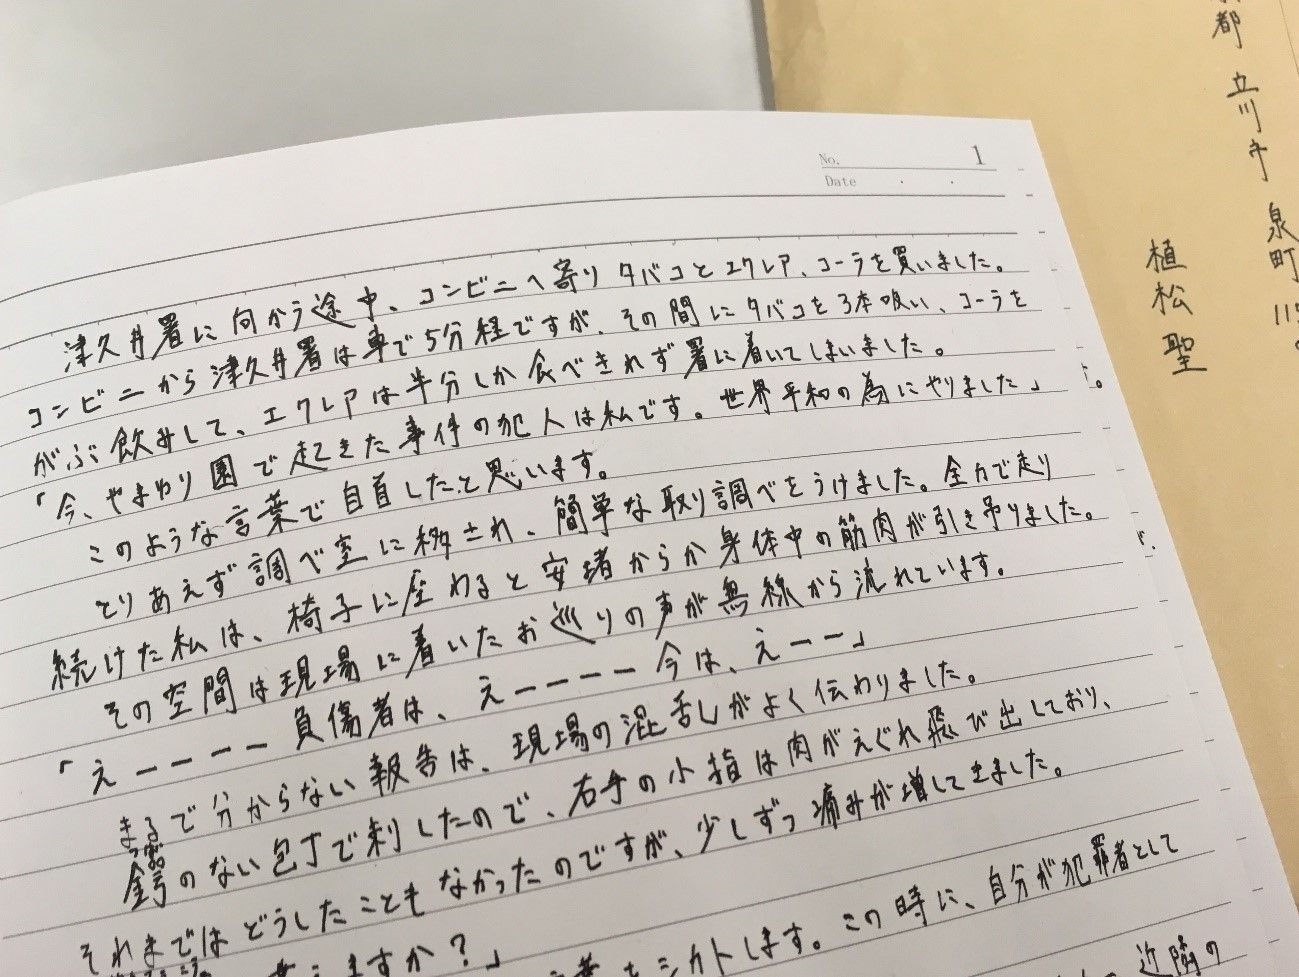 No. 1
Date
津久井署に向かう途中、コンビニへ寄りタバコとエクレア、コーラを買いました。
コンビニから津久井署は車で5分程ですが、その間にタバコを3本吸い、コーラを
がぶ飲みして、エクレアは半分しか食べきれず署に着いてしまいました。
「今、やまゆり園で起きた事件の犯人は私です。世界平和の為にやりました」
このような言葉で自首したと思います。
とりあえず調べ室に移され、簡単な取り調べをうけました。全力で走り
続けた私は、椅子に座わると安堵からか身体中の筋肉が引き吊りました。
その空間は現場に着いたお巡りの声が無線から流れています。
「えーーーー負傷者は、えーーーー今は、えーー」
まるで分からない報告は、現場の混乱しがよく伝わりました。
鍔のない包丁で刺したので、右手の小指は肉がえぐれ飛び出しており、
それまではどうしたこともなかったのですが、少しずつ痛みが増してきました。
ますか？」
シカトします。この時に、自分が犯罪者として
近隣の
都 立川市 泉町
植松 聖